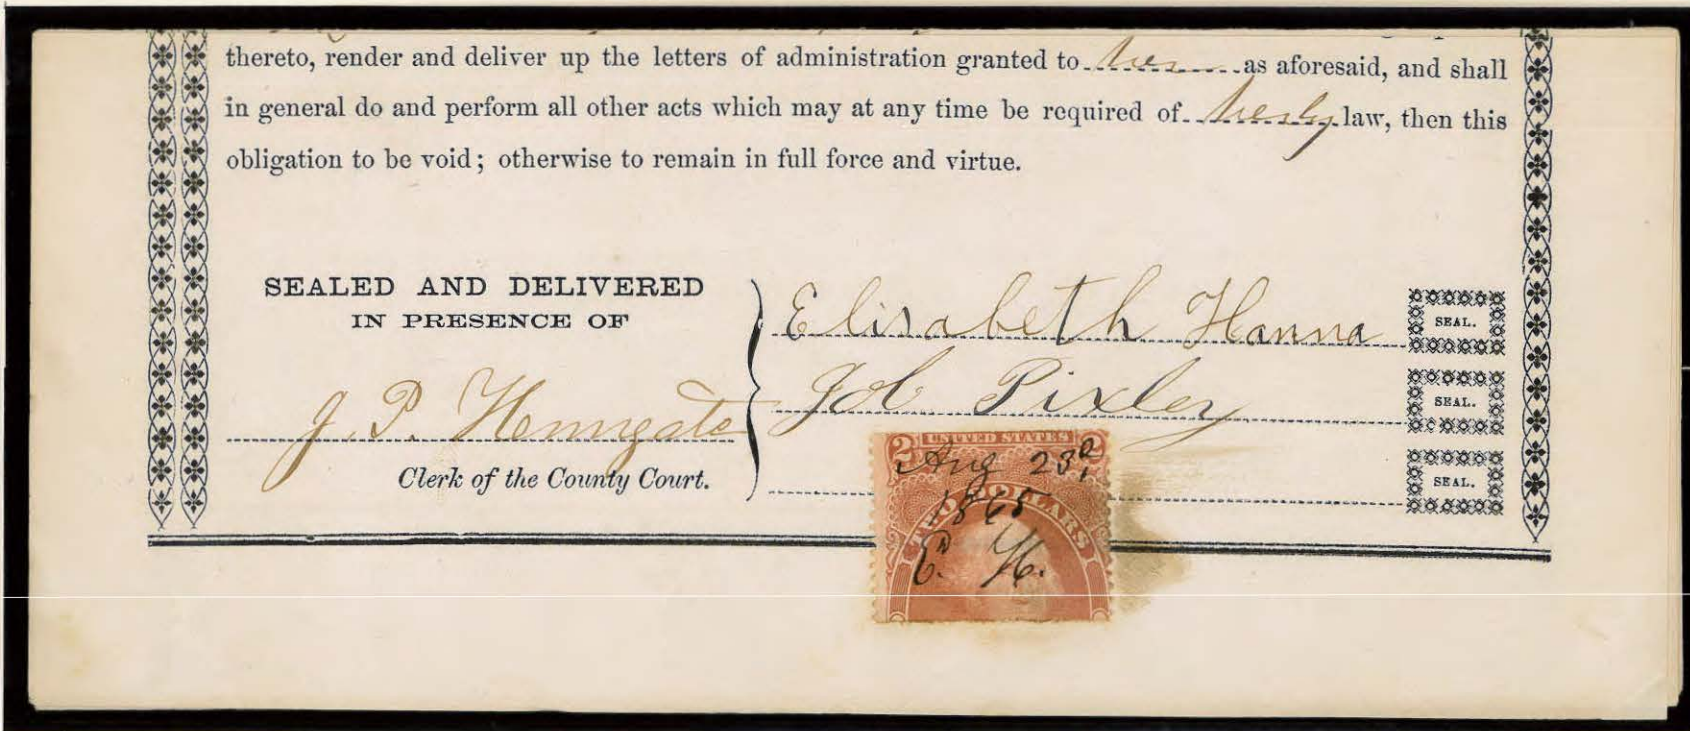 thereto, render and deliver up the letters of administration granted to her as aforesaid, and shall
in general do and perform all other acts which may at any time be required of her by law, then this
obligation to be void; otherwise to remain in full force and virtue.
SEALED AND DELIVERED
IN PRESENCE OF
Elisabeth Hanna SEAL.
Job Pixley SEAL.
J. P. Hungate
Clerk of the County Court.
SEAL.
2 UNITED STATES 2
Aug 23d
1865
TWO DOLLARS
E. H.